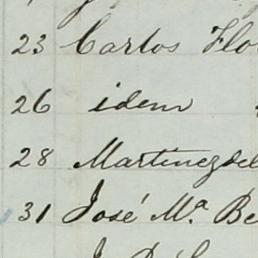 23 Carlos Flo
26 idem
28 Martinez del
31 José Mª Be